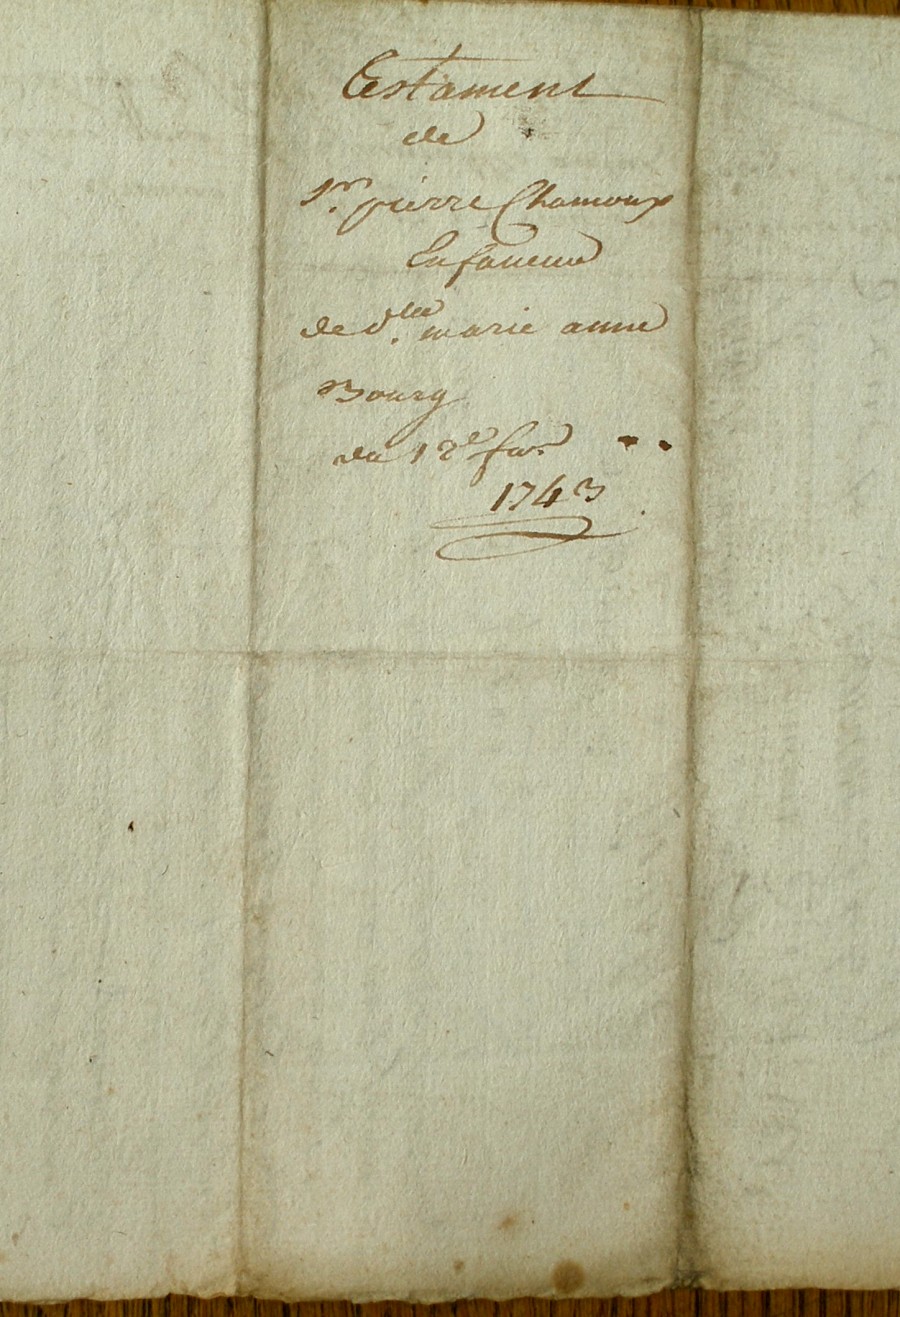 Testament
de
Sr. pierre Chamoux
En faveur
de dlle. marie anne
Bourg
du 12e fer
1743